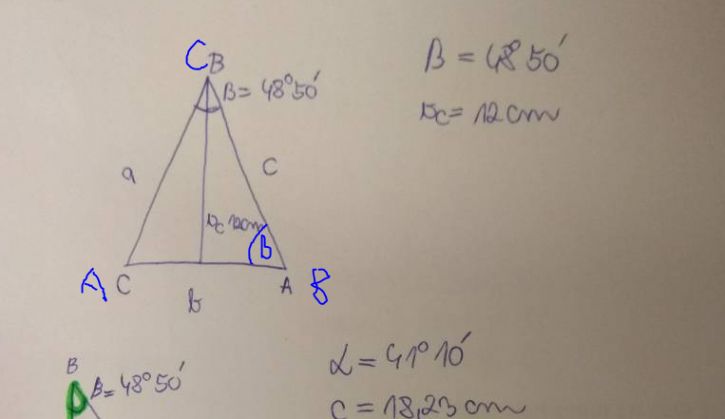 C B
β = 48°50′
β = 48°50′
vc = 12 cm
a
c
vc 12cm
β
A C
b
A B
B
β = 48°50′
α = 41°10′
c = 18,23 cm